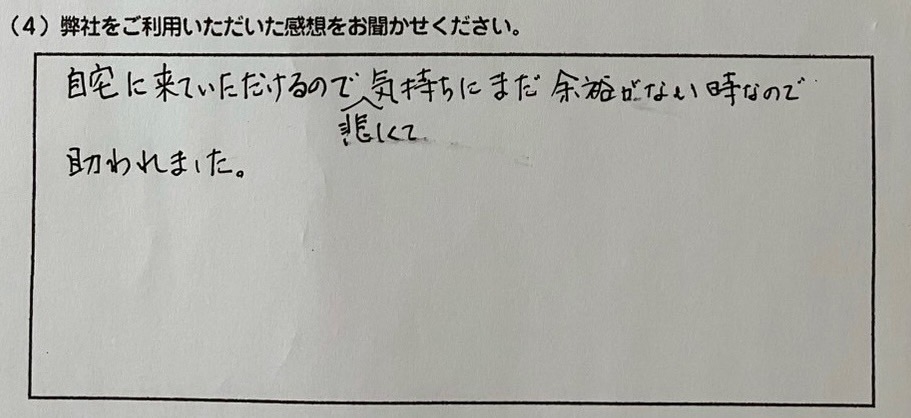 （4）弊社をご利用いただいた感想をお聞かせください。
自宅に来ていただけるので気持ちにまだ余裕がない時なので
悲しくて
助われました。